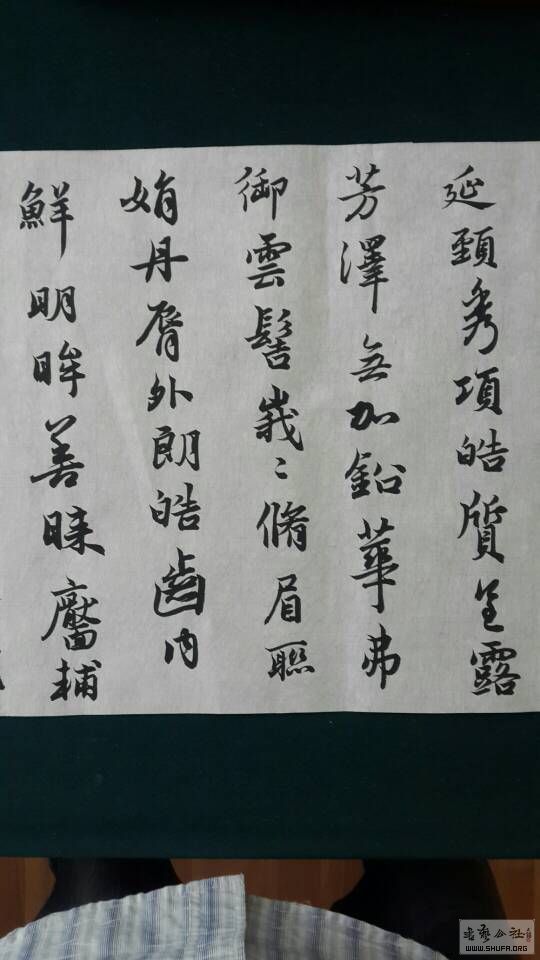 延頸秀項皓質呈露
芳澤無加鉛華弗
御雲髻峩〻脩眉聯
娟丹脣外朗皓齒内
鮮明眸善睞靨輔
书艺公社
WWW.SHUFA.ORG